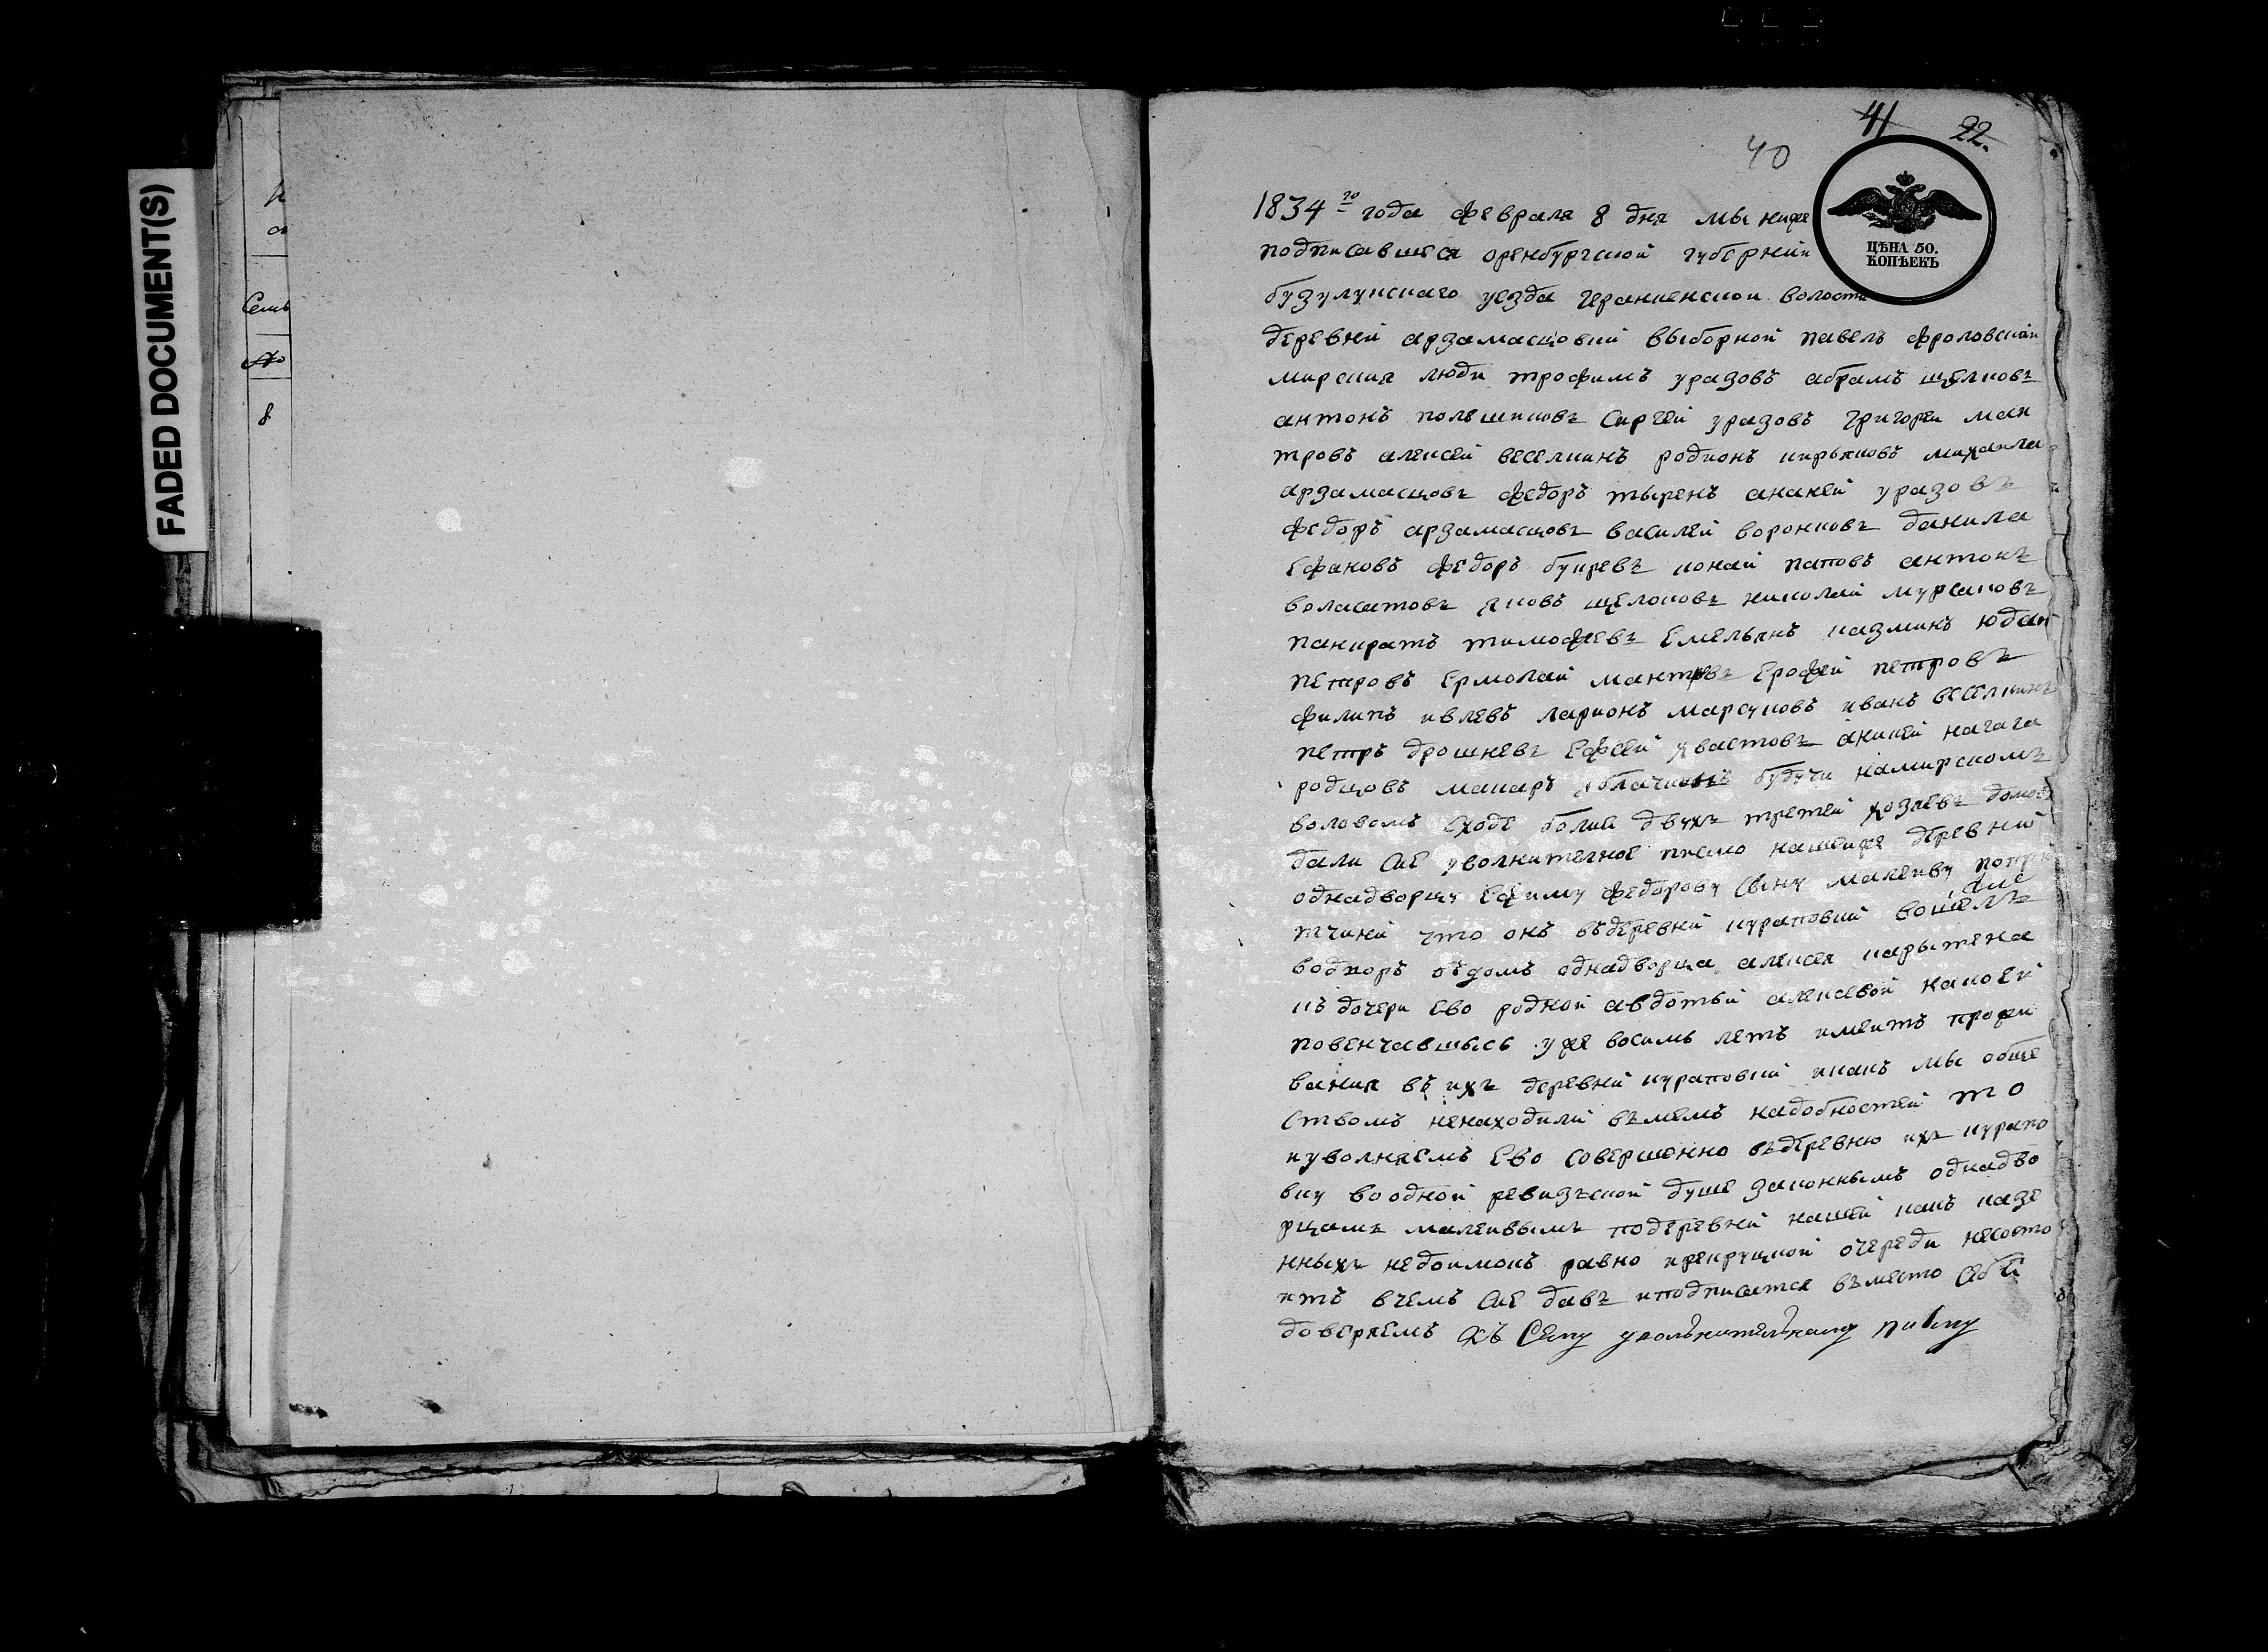 FADED DOCUMENT(S)
Семь
8
41 22.
40
ЦѢНА 50.
КОПѢЕКЪ
1834го года февраля 8 дня мы ниже
подписавшеся оренбургской губернии
бузулукскаго уезда герасиевской волости
деревни арзамасцовки выборной павелъ фроловскаи
мирския люди трофимъ уразовъ абрамъ щелковъ
антонъ полешиковъ сиргей уразовъ григореи ман
тровъ алексей веселкинъ родионъ кирьяковъ михаила
арзамасцовъ федоръ тыренъ ананей уразовъ
федоръ арзамасцовъ василей воронковъ данила
ефановъ федоръ букревъ конай паповъ антонъ
воласатовъ яковъ щелоковъ николай мурсаковъ
панкратъ тимофеевъ емельянъ казминъ юдан
петровъ ермолай мантровъ ерофей петровъ
филипъ ивлевъ ларионъ марсуковъ иванъ веселкинъ
петръ дрошневъ ефсей хвастовъ аникей начага
родцовъ макаръ будучи намирскомъ
воловомъ сходе болии двухъ третей хозяевъ домовъ
дали сие уволнителное писмо нашейже деревни
однадворцу ефиму федорову сыну малеиву попри
чине что онъ въдеревни кураповки вошелъ
водворъ въдомъ однадворца алексея карытена
къ дочери ево родной авдотьи алексевой накоей
повенчавшысь уже восимь летъ имеитъ прожи
вания въ ихъ деревни кураповки икакъ мы обще
ствомъ ненаходили въмемъ надобностей то
иуволняемъ ево совершенно въдеревню ихъ курапо
вку во одной ревизъской душе законнымъ однадво
рцамъ малеивымъ подеревни нашей какъ казе
нныхъ недоимокъ равно ирекруцкой очереди несосто
итъ вчемъ сие давъ иподписатся въместо себя
доверяемъ къ сему увольнительному письму